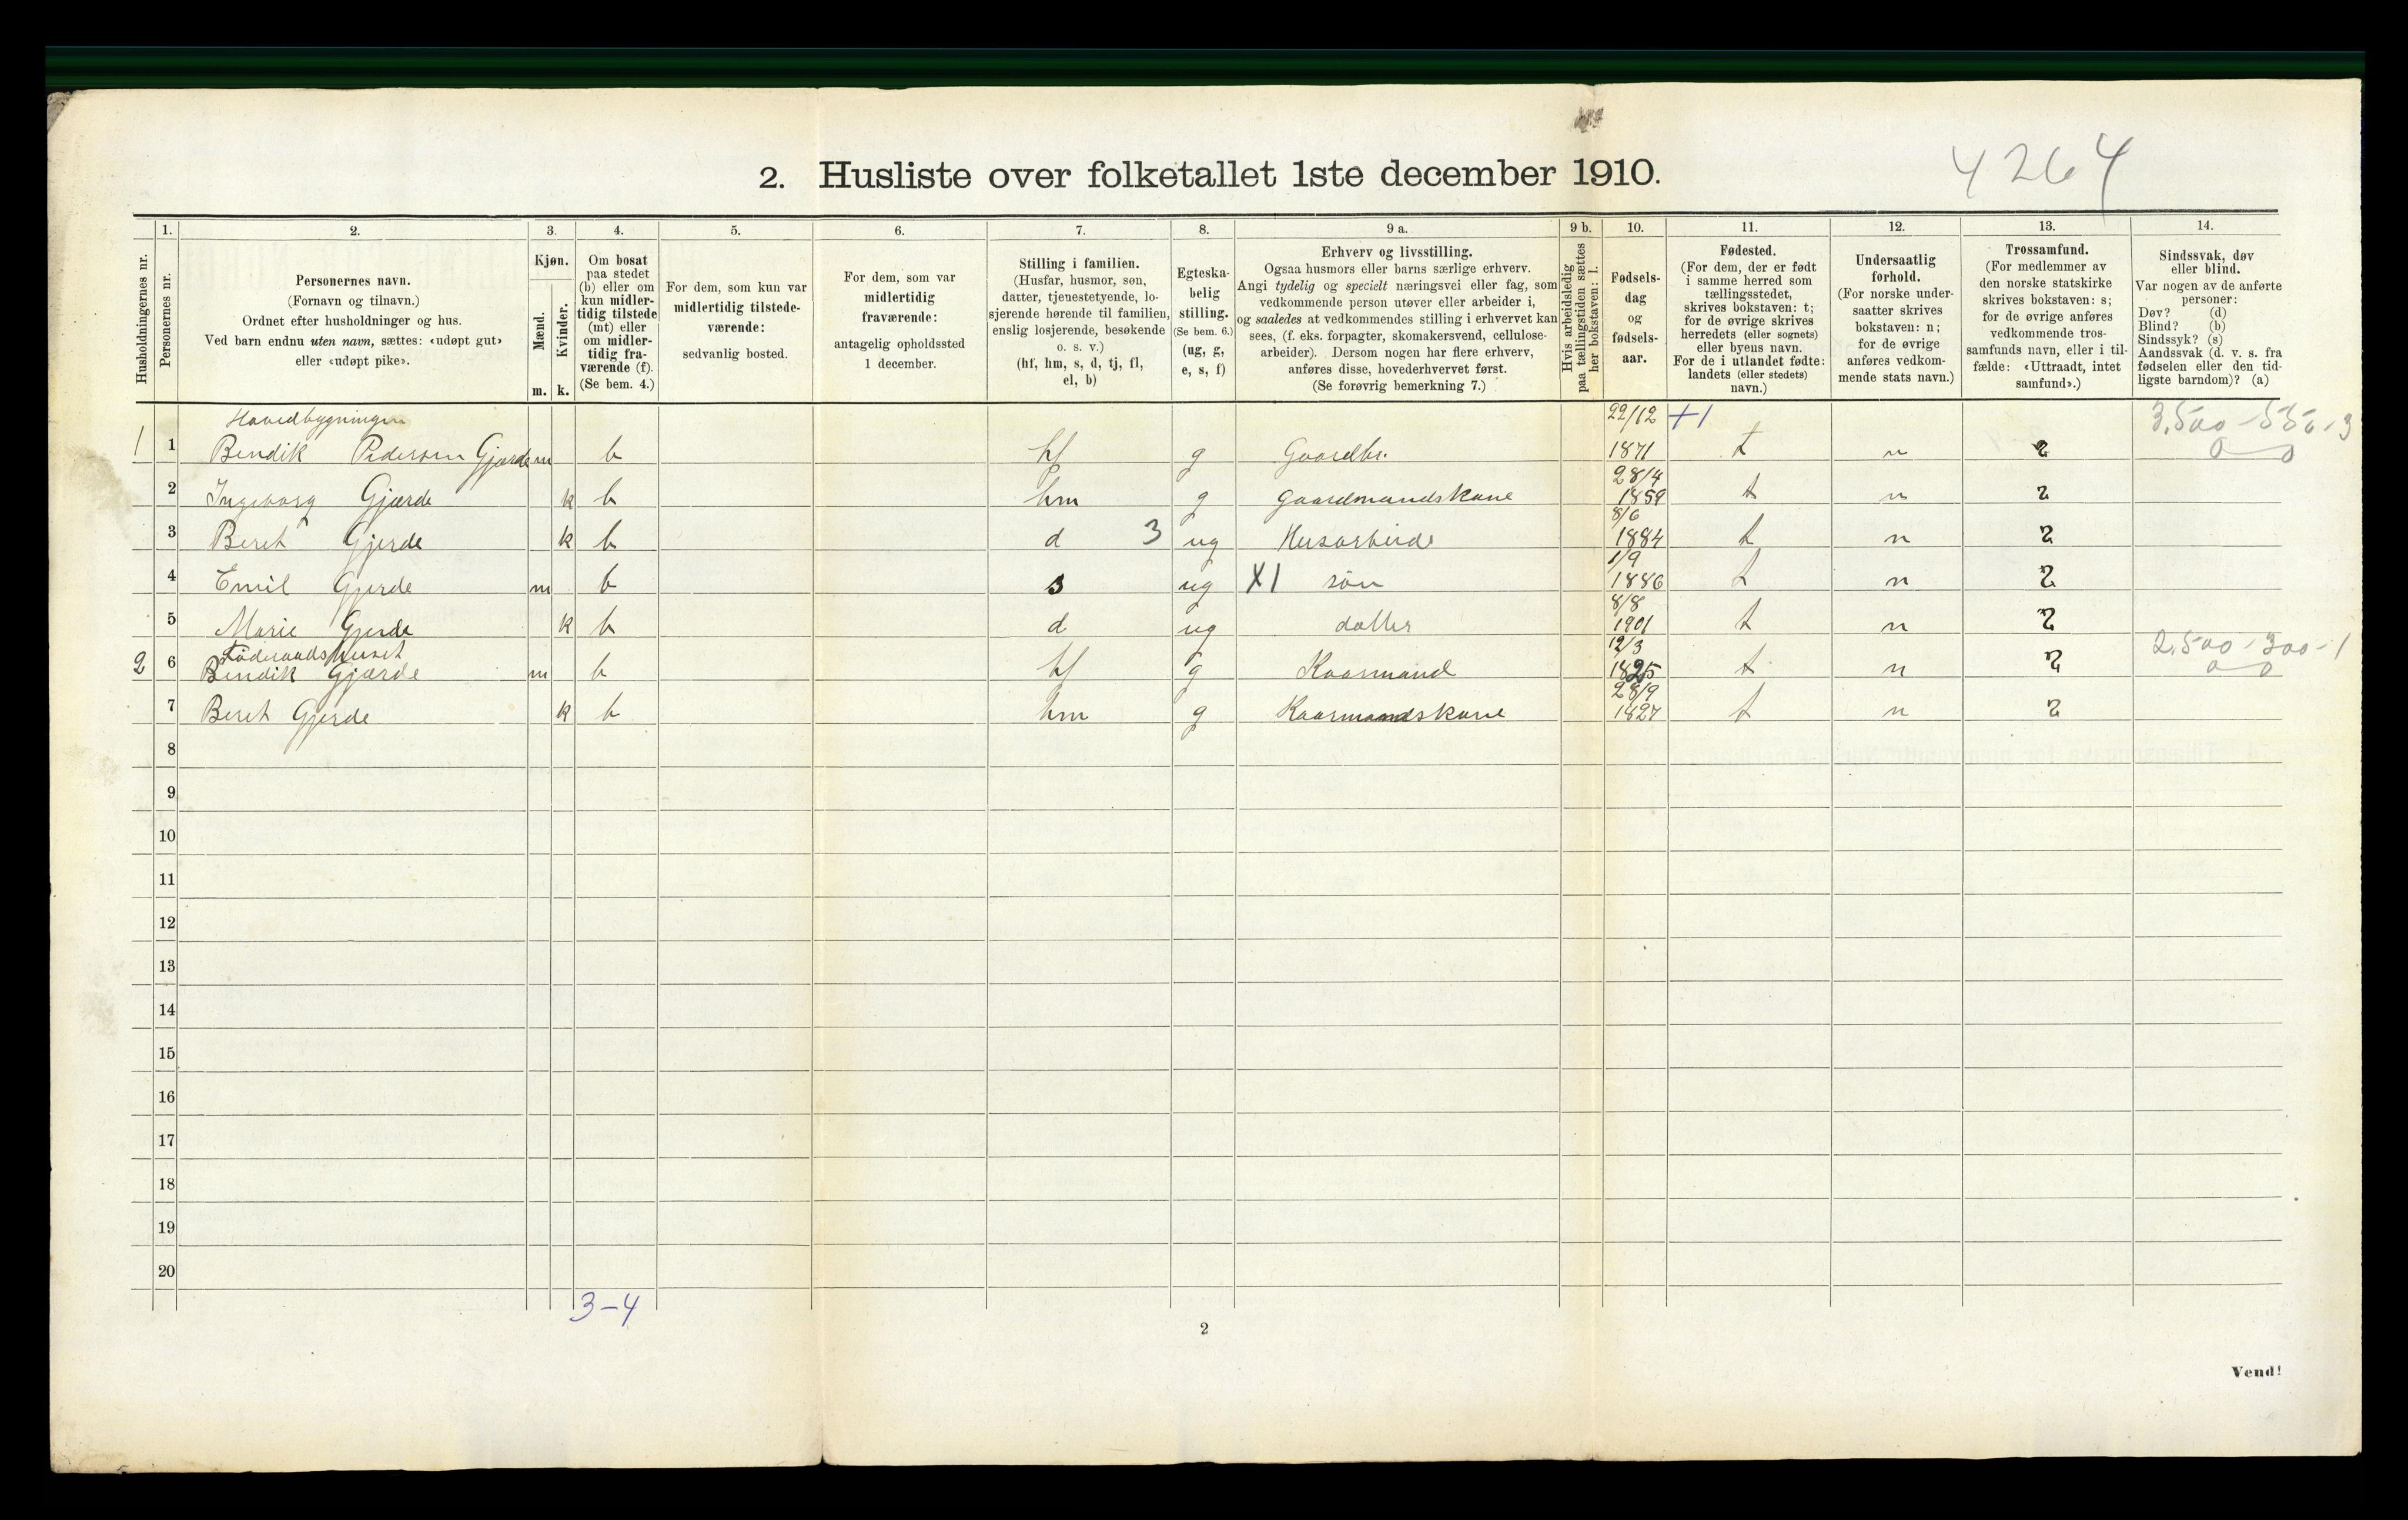 4264
2. Husliste over folketallet 1ste december 1910.
Husholdningernes nr.
1.
Personernes nr.
2.
Personernes navn.
(Fornavn og tilnavn.)
Ordnet efter husholdninger og hus.
Ved barn endnu uten navn, sættes: «udøpt gut»
eller «udøpt pike».
3.
Kjøn.
Mænd.
Kvinder.
m. k.
4.
Om bosat
paa stedet
(b) eller om
kun midler-
tidig tilstede
(mt) eller
om midler-
tidig fra-
værende (f).
(Se bem. 4.)
5.
For dem, som kun var
midlertidig tilstede-
værende:
sedvanlig bosted.
6.
For dem, som var
midlertidig
fraværende:
antagelig opholdssted
1 december.
7.
Stilling i familien.
(Husfar, husmor, søn,
datter, tjenestetyende, lo-
sjerende hørende til familien,
enslig losjerende, besøkende
o. s. v.)
(hf, hm, s, d, tj, fl,
el, b)
8.
Egteska-
belig
stilling.
(Se bem. 6.)
(ug, g,
e, s, f)
9 a.
Erhverv og livsstilling.
Ogsaa husmors eller barns særlige erhverv.
Angi tydelig og specielt næringsvei eller fag, som
vedkommende person utøver eller arbeider i,
og saaledes at vedkommendes stilling i erhvervet kan
sees, (f. eks. forpagter, skomakersvend, cellulose-
arbeider). Dersom nogen har flere erhverv,
anføres disse, hovederhvervet først.
(Se forøvrig bemerkning 7.)
9 b.
Hvis arbeidsledig
paa tællingstiden sættes
her bokstaven: l.
10.
Fødsels-
dag
og
fødsels-
aar.
11.
Fødested.
(For dem, der er født
i samme herred som
tællingsstedet,
skrives bokstaven: t;
for de øvrige skrives
herredets (eller sognets)
eller byens navn.
For de i utlandet fødte:
landets (eller stedets)
navn.)
12.
Undersaatlig
forhold.
(For norske under-
saatter skrives
bokstaven: n;
for de øvrige
anføres vedkom-
mende stats navn.)
13.
Trossamfund.
(For medlemmer av
den norske statskirke
skrives bokstaven: s;
for de øvrige anføres
vedkommende tros-
samfunds navn, eller i til-
fælde: «Uttraadt, intet
samfund».)
14.
Sindssvak, døv
eller blind.
Var nogen av de anførte
personer:
Døv? (d)
Blind? (b)
Sindssyk? (s)
Aandssvak (d. v. s. fra
fødselen eller den tid-
ligste barndom)? (a)
Hovedbygningen 22/12 +1 3,500-550-3
1 1 Bendik Pedersen Gjærde m b hf g Gaardbr. 1871 t n s 0 0
28/4
2 Ingeborg Gjærde k b hm g Gaardmandskone 1859 t n s
8/6
3 Beret Gjerde k b d 3 ug Husarbeide 1884 t n s
1/9
4 Emil Gjerde m b s ug X1 søn 1886 t n s
8/8
5 Marie Gjerde k b d ug datter 1901 t n s
Føderaadshuset 12/3 2,500-300-1
2 6 Bendik Gjærde m b hf g Kaarmand 1825 t n s 0 0
28/9
7 Beret Gjerde k b hm g Kaarmandskone 1827 t n s
8
9
10
11
12
13
14
15
16
17
18
19
20
3-4
2
Vend!